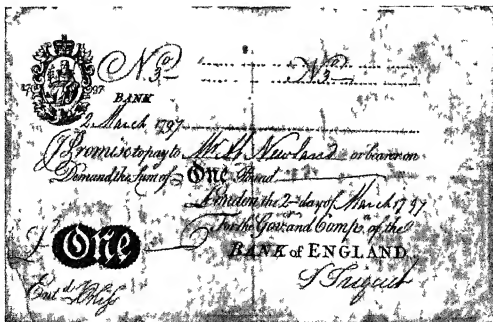 1797
No 3 No 3
BANK
2 March 1797
I Promise to pay to Mr A. Newland or bearer on
Demand the Sum of One Pound
London the 2 day of March 1797
For the Gov: and Comp:a of the
BANK of ENGLAND.
£ One
Ent.d